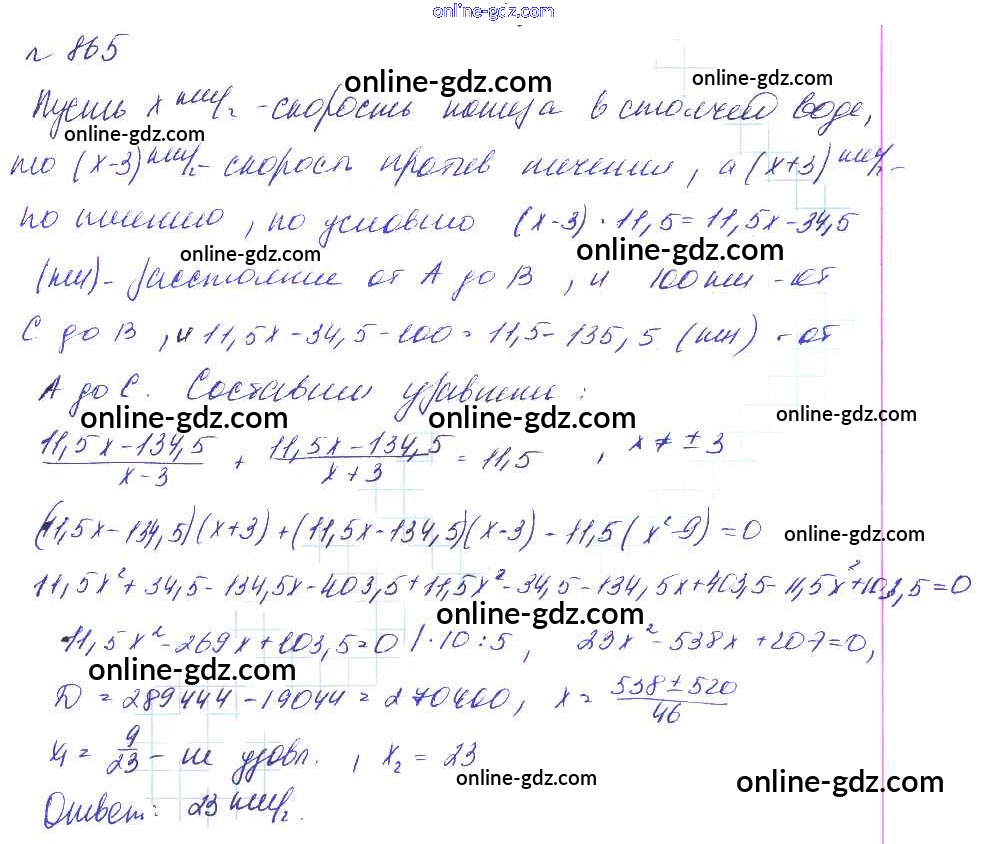 online-gdz.com
n 865
online-gdz.com online-gdz.com
Пусть x км/ч - скорость катера в стоячей воде,
online-gdz.com online-gdz.com
то (x-3) км/ч - скорость против течения, а (x+3) км/ч -
по течению, по условию (x-3) · 11,5 = 11,5x - 34,5
online-gdz.com online-gdz.com
(км) - расстояние от A до B, и 100 км - от
C до B, и 11,5x - 34,5 - 100 = 11,5 - 135,5 (км) - от
A до C. Составим уравнение:
online-gdz.com online-gdz.com online-gdz.com
(11,5x - 134,5)/(x - 3) + (11,5x - 134,5)/(x + 3) = 11,5, x ≠ ± 3
(11,5x - 134,5)(x+3) + (11,5x - 134,5)(x-3) - 11,5(x² - 9) = 0
online-gdz.com
11,5x² + 34,5 - 134,5x - 403,5 + 11,5x² - 34,5 - 134,5x + 403,5 - 11,5x² + 103,5 = 0
online-gdz.com
11,5x² - 269x + 103,5 = 0 | · 10 : 5, 23x² - 538x + 207 = 0,
online-gdz.com
D = 289444 - 19044 = 270400, x = (538 ± 520)/46
x₁ = 9/23 - не удовл., x₂ = 23
online-gdz.com online-gdz.com
Ответ: 23 км/ч.